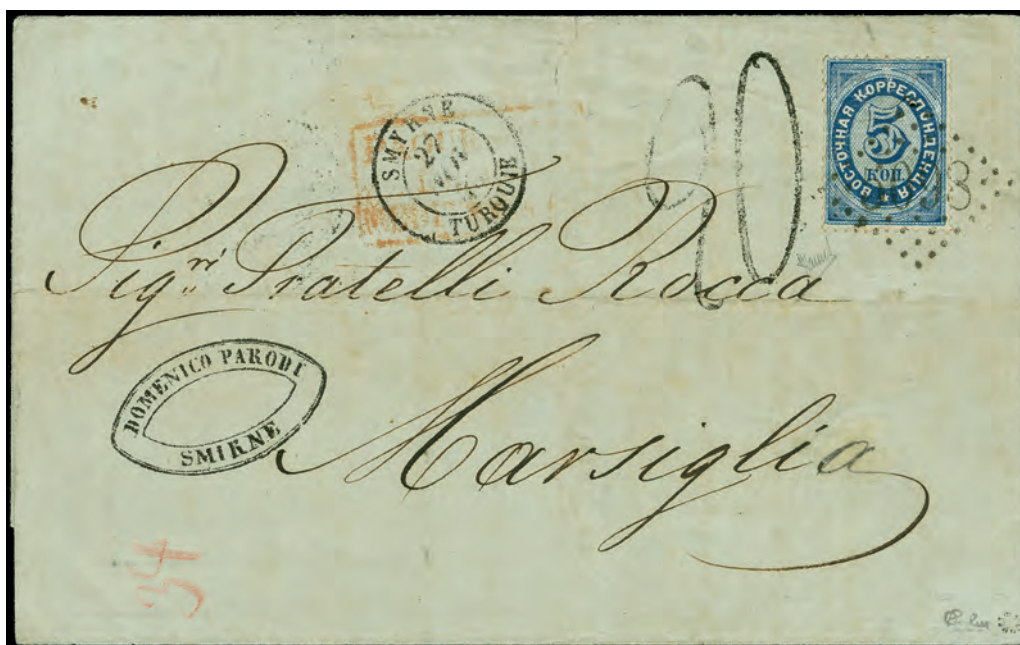 SMYRNE
27
TURQUIE
20
ВОСТОЧНАЯ КОРРЕСПОНДЕНЦІЯ
5
КОП.
Sigri Fratelli Rocca
DOMENICO PARODI
SMIRNE
Marsiglia
34